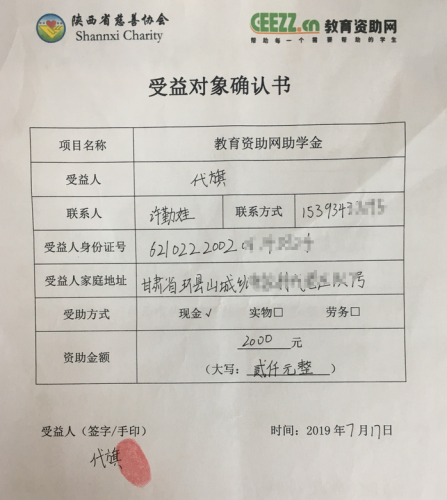 陕西省慈善协会
Shannxi Charity
CEEZZ.cn 教育资助网
帮助每一个需要帮助的学生
受益对象确认书
项目名称 教育资助网助学金
受益人 代旗
联系人 许勤娃 联系方式 153934
受益人身份证号 6210222002
受益人家庭地址 甘肃省环县山城乡 号
受助方式 现金✓ 实物□ 劳务□
资助金额 2000 元
(大写: 贰仟元整 )
受益人(签字/手印) 时间:2019年7月17日
代旗